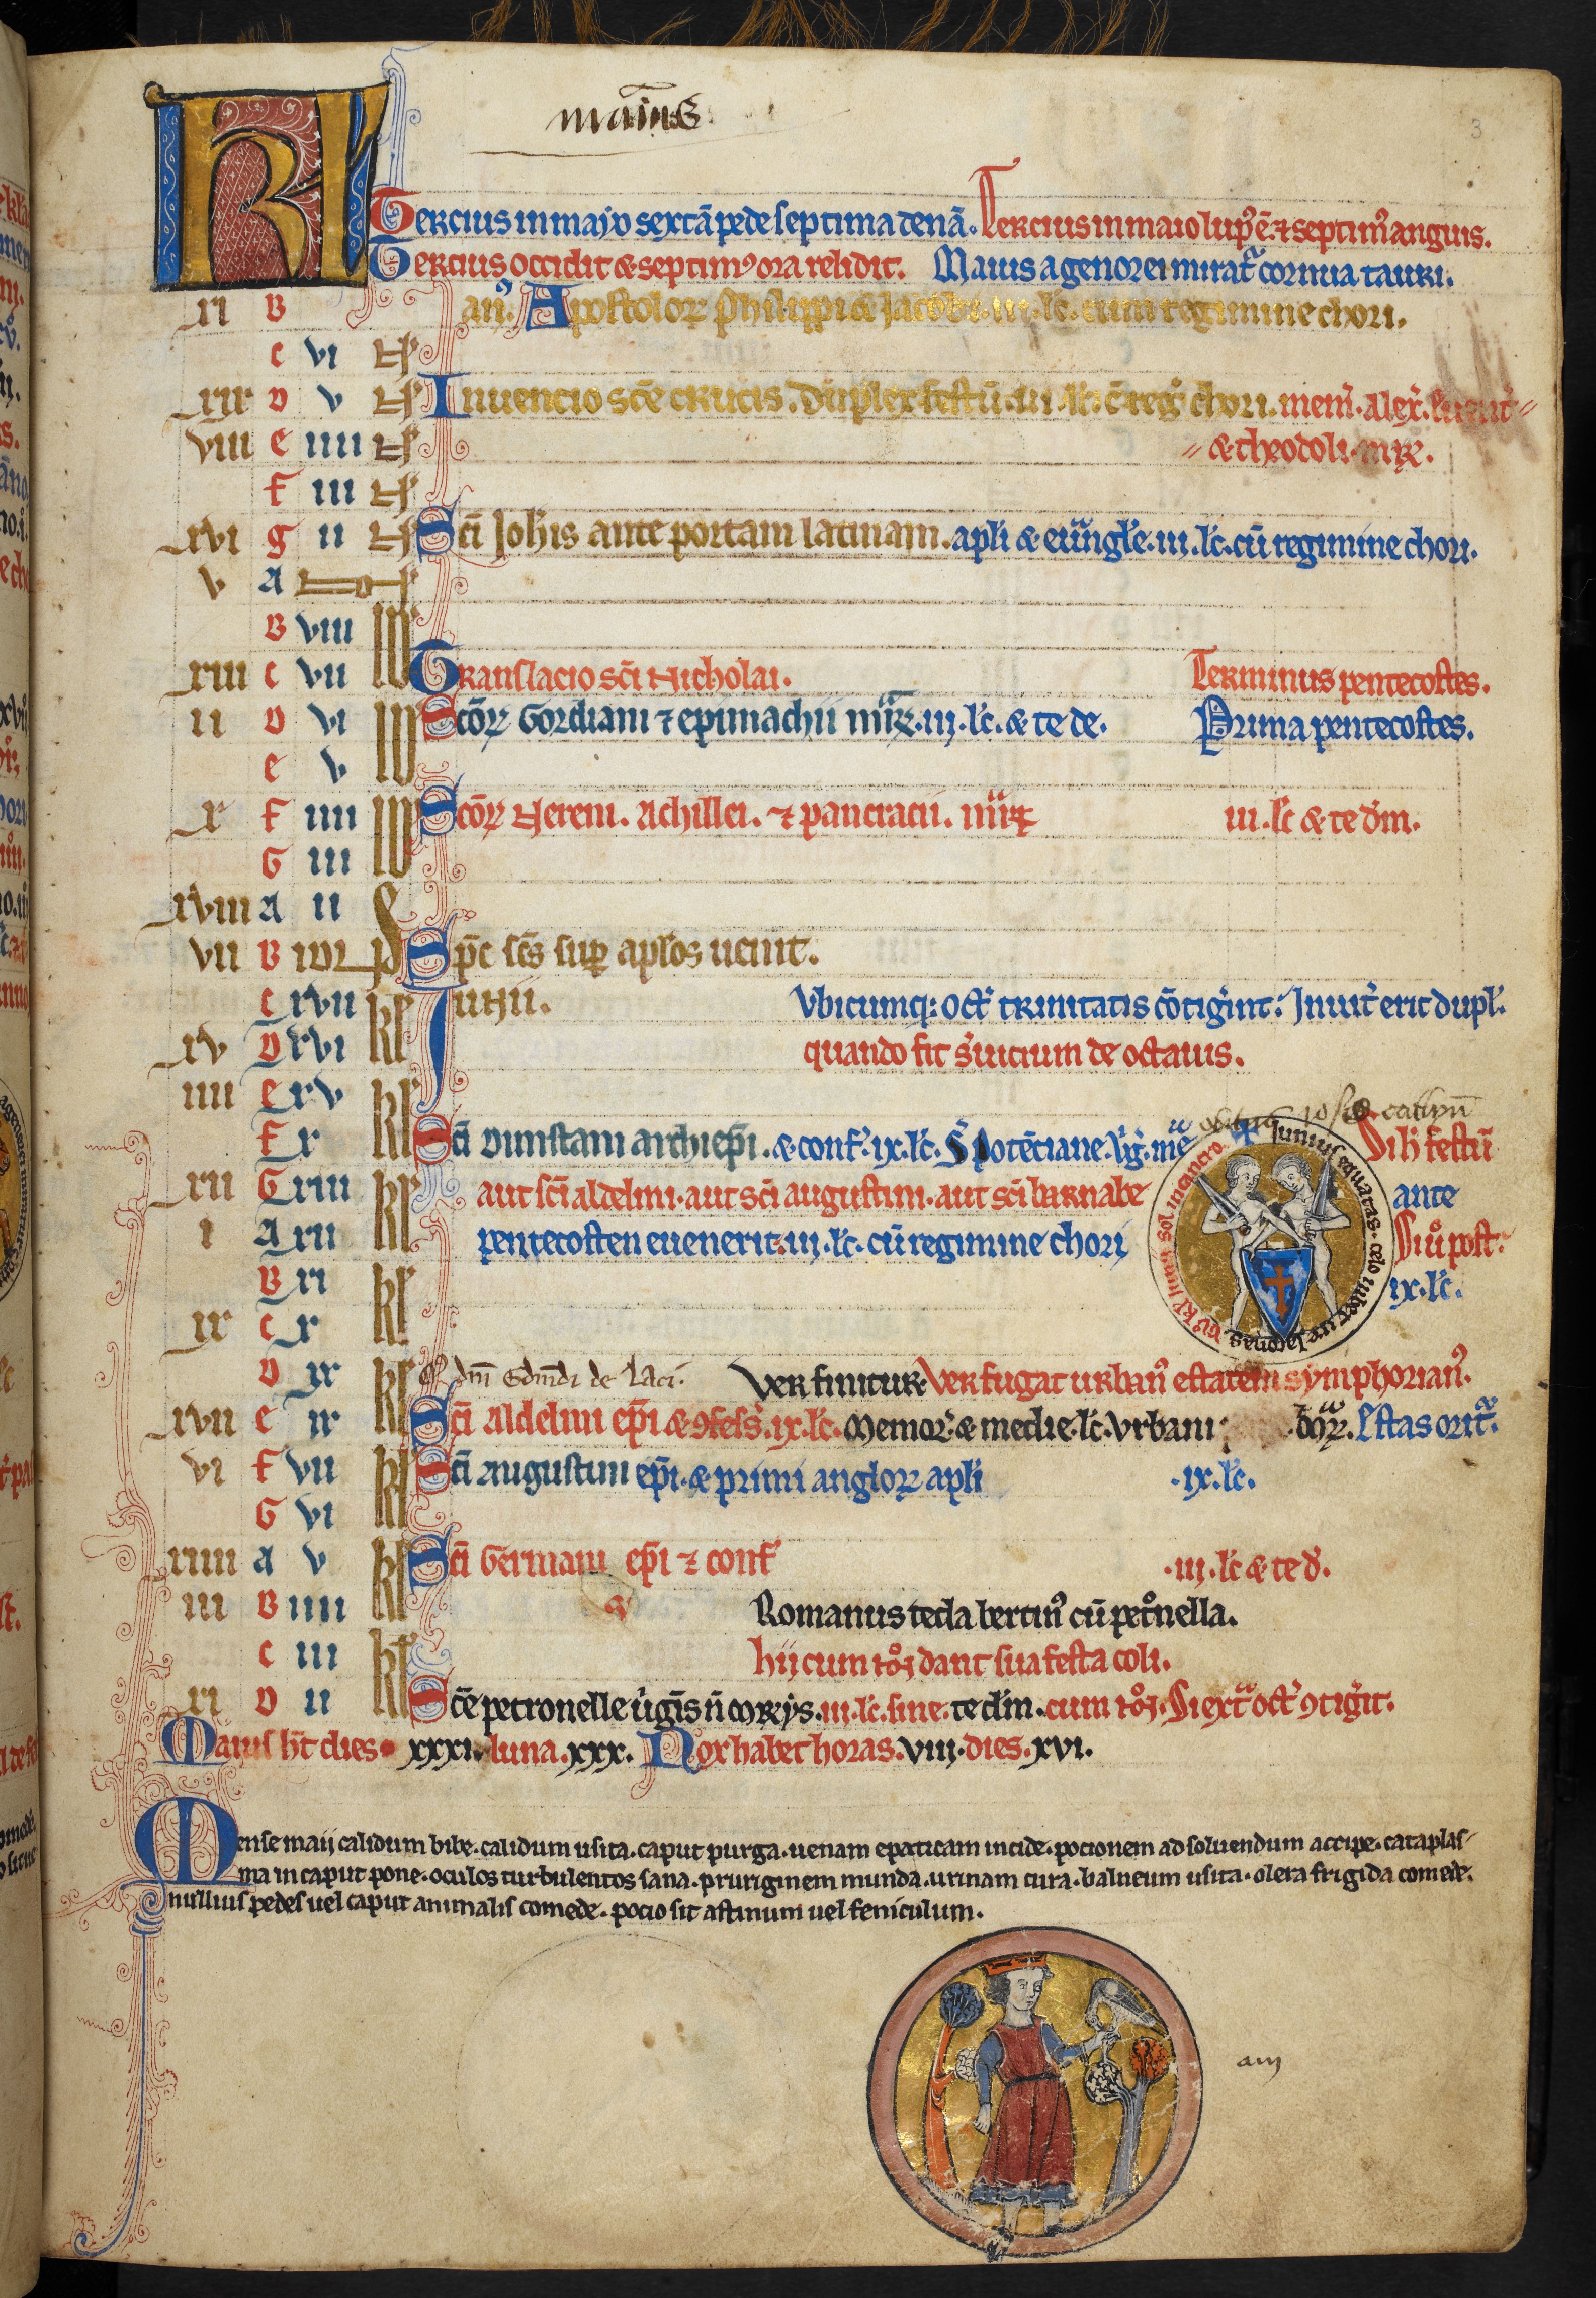 maius
3
KL Tercius in majo sextã pede septima denã. Tercius in maio lup᷒ ē ⁊ septim᷒ anguis.
Tercius occidit & septim᷒ ora relidit. Maius agenorei mirat᷑ cornua tauri.
xi B an᷒. Apostoloꝝ Philippi & Jacobi. iii. lc̄. cum regimine chori.
c vi N᷒
xix D v N᷒ Inuencio sc̄e crucis. duplex festū. iii. lc̄. c̄ reg᷒ chori. mem᷒. alex᷒.
viii e iiii N᷒ & theodoli. mr̄ꝝ.
F iii N᷒
xvi g ii N᷒ Sc̄i Joh̄is ante portam latinam. apl̄i & euangl̄e. iii. lc̄. cū regimine chori.
v A
B viii Id᷒
xiii c vii Id᷒ Translacio sc̄i Nicholai. Terminus pentecostes.
ii D vi Id᷒ Sc̄oꝝ Gordiani ⁊ epimachii mr̄ꝝ. iii. lc̄. & te de. Prima pentecostes.
e v Id᷒
x F iiii Id᷒ Sc̄oꝝ Nerei. Achillei. ⁊ pancracii. mr̄ꝝ iii. lc̄ & te dm̄.
G iii Id᷒
xviii A ii
vii B Sp̄c sc̄s sup̱ ap̄los uenit.
c xvii kl᷒ Junii. Vbicumq: oct᷒ trinitatis cōtig᷒int: Inuit᷒ erit dupl᷒.
xv D xvi kl᷒ quando fit s᷒uicium de octauis.
iiii e xv kl᷒
F x kl᷒ Sc̄i Dunstani archiep̄i. & conf᷒. ix. lc̄. S᷒ Potēciane. u᷒g᷒. Si h᷒ festū
xii G xiii kl᷒ aut sc̄i aldelmi. aut sc̄i augustini. aut sc̄i barnabe ante
i A xii kl᷒ pentecosten euenerit. iii. lc̄. cū regimine chori Siu᷒ post.
B xi kl᷒ ix. lc̄.
ix c x kl᷒
✠ Junius equatas. celo
sol in cancro
D ix kl᷒ dn̄i Edm̄di de Laci. Ver finitur. Ver fugat urban᷒ estatem symphorian᷒.
xvii e ix kl᷒ Sc̄i Aldelmi ep̄i & ꝯfess᷒. ix. lc̄. Memor᷒. & medie. lc̄. Vrbani Estas orit᷑.
vi F vii kl᷒ Sc̄i Augustini ep̄i. & primi angloꝝ apl̄i . ix. lc̄.
G vi kl᷒
xiiii a v kl᷒ Sc̄i Germani ep̄i ⁊ conf᷒ . iii. lc̄ & te d᷒.
iii B iiii kl᷒ Romanus tecla bertin᷒ cū pet᷒nella.
c iii kl᷒ hij cum dant sua festa coli.
xi D ii kl᷒ Sc̄e petronelle u᷒gīs n̄ mr̄ys. iii. lc̄. sine. te dm̄. cum Si ext᷒ oct᷒ ꝯtig᷒it.
Maius h̄t dies. xxxi. luna. xxx. Nox habet horas. viii. dies. xvi.
Mense maij calidum bibe. calidum usita. caput purga. uenam epaticam incide. pocionem ad soluendum accipe. cataplas-
ma in caput pone. oculos turbulentos sana. pruriginem munda. urinam cura. balneum usita. olera frigida comede.
nullius pedes uel caput animalis comede. pocio sit astinum uel feniculum.